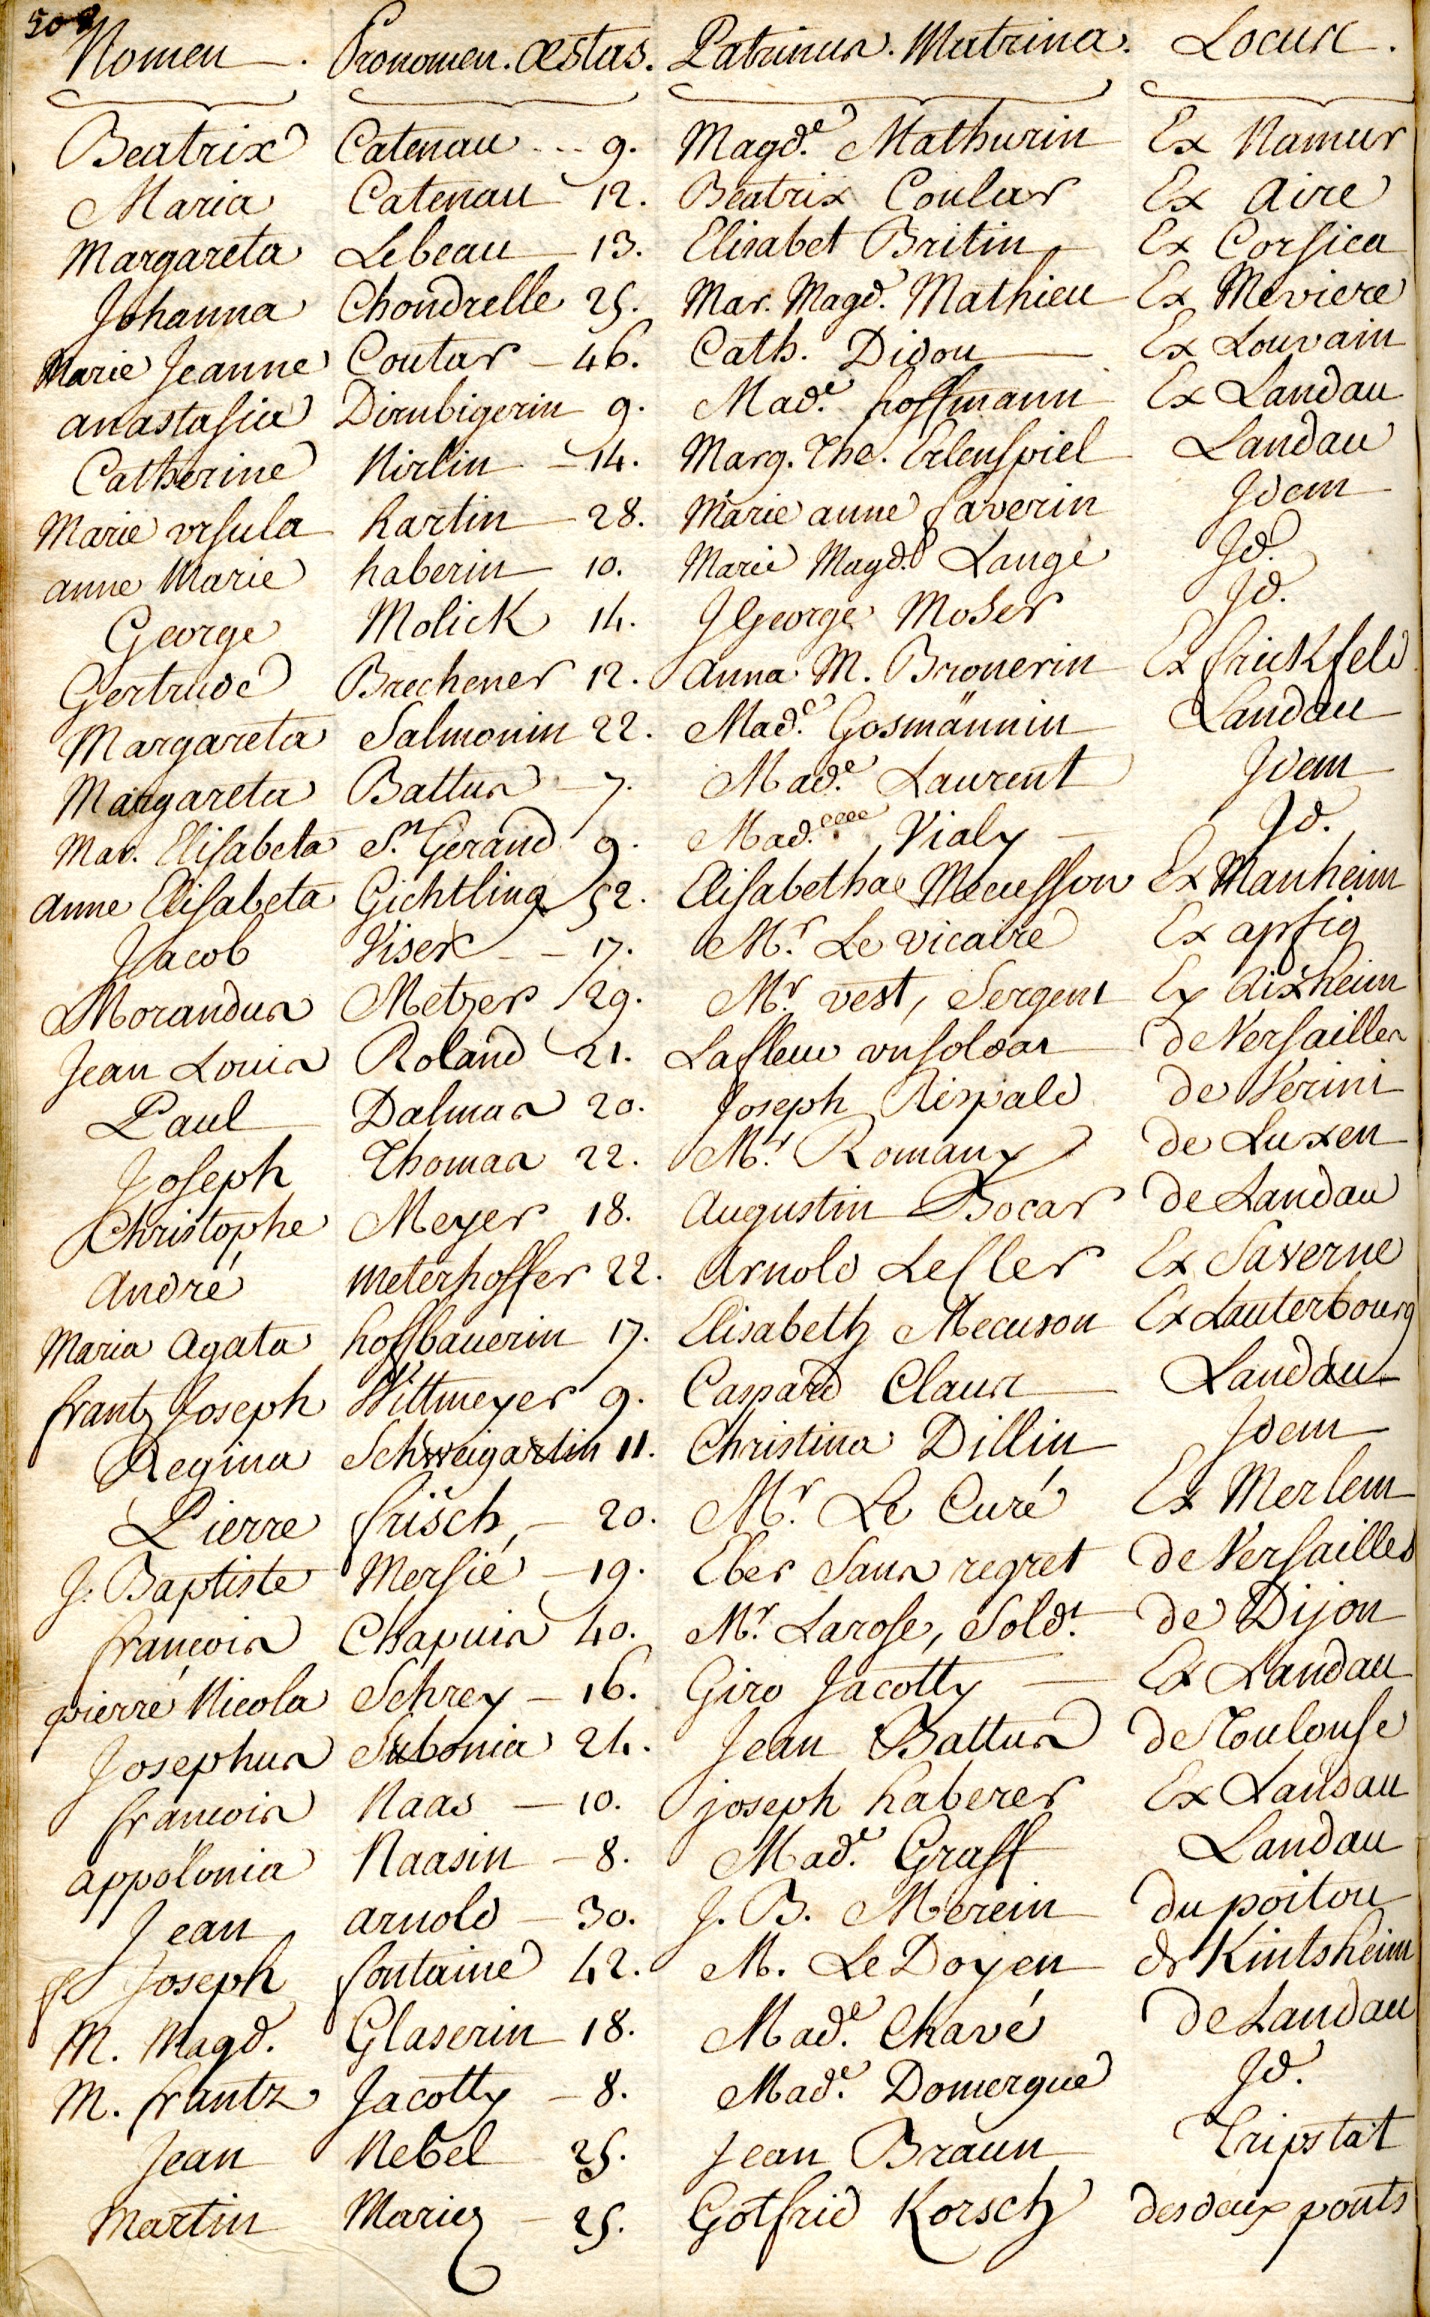 502
Nomen. Pronomen. Œstas. Patrinus. Matrina. Locus.
Beatrix Catenau - - - 9. Magd.e Mathurin Ex Namur
Maria Catenau 12. Beatrix Coular Ex Aire
Margareta Lebeau - 13. Elisabet Britin Ex Corsica
Johanna Chondrelle 25. Mar. Magd. Mathieu Ex Meviere
Marie Jeanne Coutar - 46. Cath. Didou Ex Louvain
anastasia Dirnbigerin 9. Mad.e hoffmann Ex Landau
Catherine Nirlin - 14. Marg. The. Erlenspiel Landau
Marie ursula hartin - 28. Marie anne Saverin Idem
anne Marie haberin 10. Marie Magd.e Lange Id.
George Molick 14. J George Moser Id.
Gertrude Brechener 12. Anna M. Bronerin Ex frickfeld
Margareta Salmonin 22. Mad.e Gosmännin Landau
Margareta Battus - 7. Mad.e Laurent Idem
Mar. Elisabeta St. Gerand 9. Mad. Vialy - Id.
Anne Elisabeta Gichtling 52. Elisabetha Mecusson Ex Manheim
Jacob Viser - - 17. Mr. Le vicaire Ex apfig
Morandus Metzer 29. Mr vest, Sergent Ex Aixheim
Jean Louis Roland 21. Lafleur un soldat de Versailles
Paul Dalmas 20. Joseph Rispald de Verini
Joseph Thomas 22. Mr. Romany de Luxen
Christophe Meyer 18. Augustin Bocar de Landau
André meterhoffer 22. Arnold Lesler Ex Saverne
Maria Agata hoffbauerin 17. Elisabeth Mecuson Ex Lauterbourg
frantz Joseph Wittmeyer 9. Caspard Claus Landau
Regina Schweigartin 11. Christina Dillin Idem
Pierre frisch - 20. Mr. Le Curé Ex Merlem
J. Baptiste Mersié - 19. Eber Sans regret de Versailles
françois Chapuis 40. Mr. Larose, Soldt. de Dijon
pierre Nicola Schrey - 16. Giro Jacotty - Ex Landau
Josephus Subonia 24. Jean Battus de Toulouse
françois Naas - 10. joseph haberer Ex Landau
appolonia Naasin - 8. Mad.e Graff Landau
Jean arnold - 30. J. B. Merein du poitou
f Joseph fontaine 42. M. Le Doyen de Kintsheim
M. Magd. Glaserin 18. Mad.e Chavé de Landau
M. frantz Jacotty - 8. Mad.e Domergue Id.
Jean Nebel 25. Jean Braun Tripstat
Martin Mariez - 25. Gotfrid Korsch des deux ponts